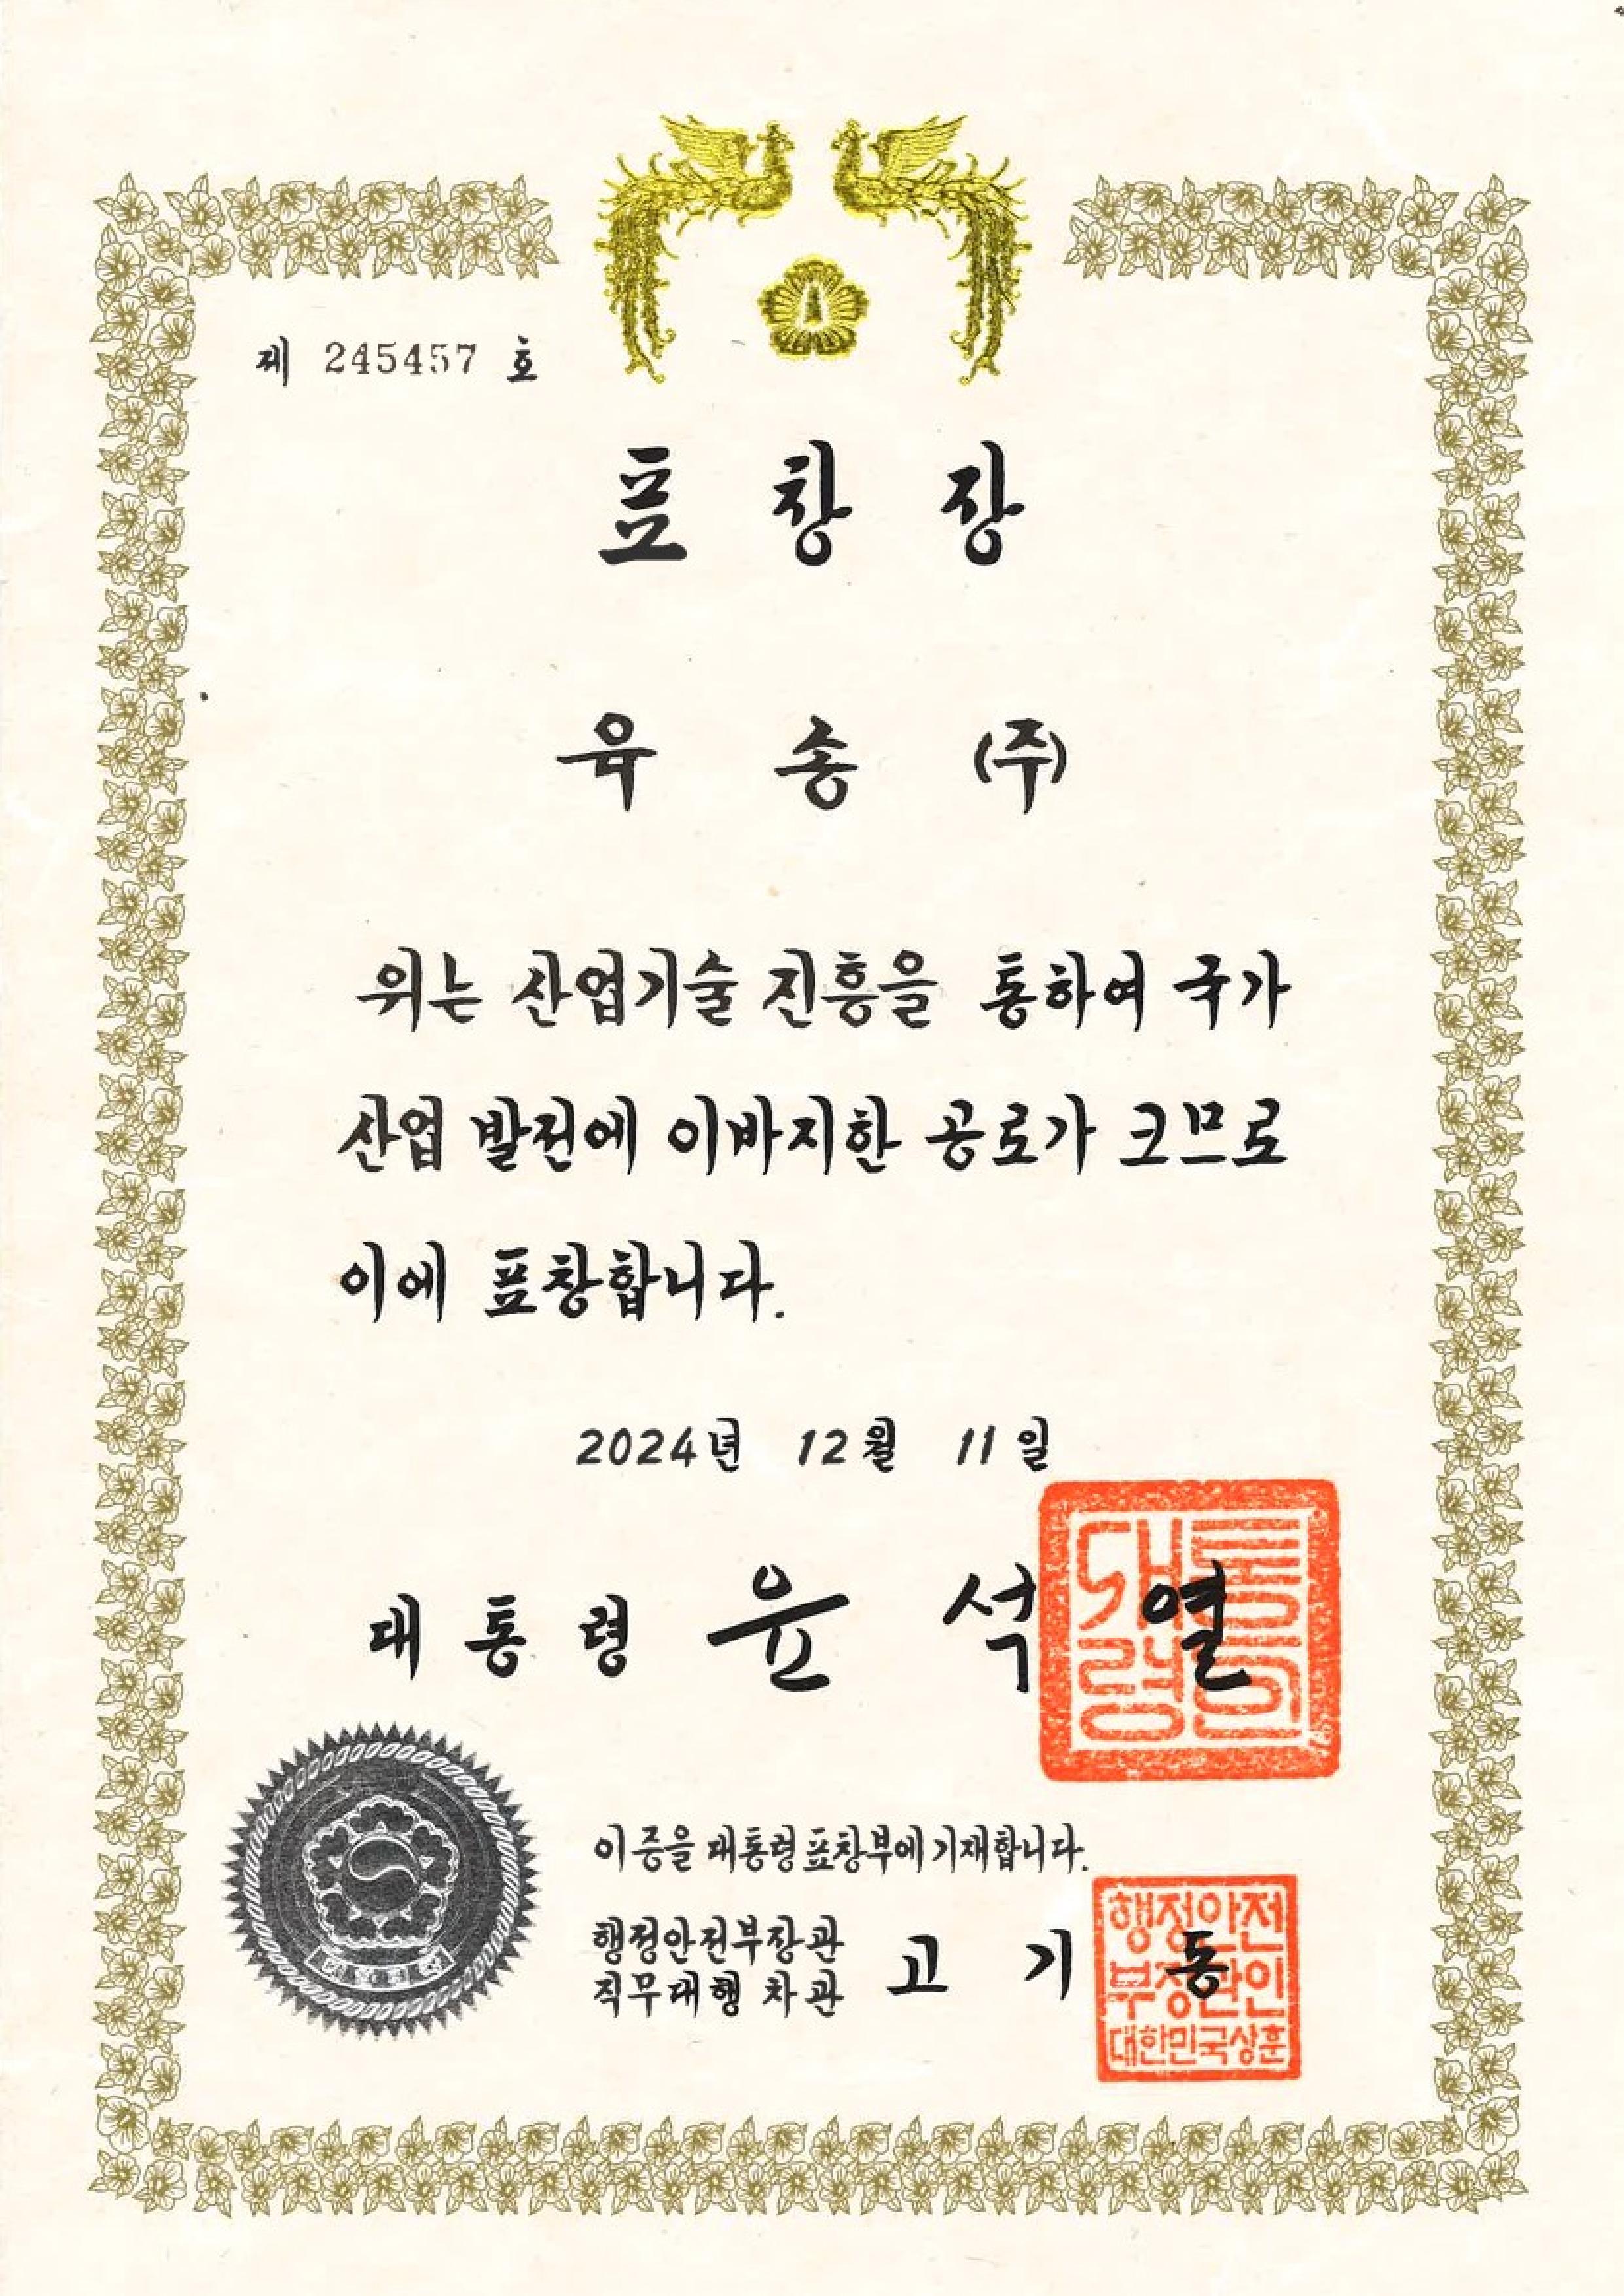 제 245457 호
표 창 장
육 송 (주)
위는 산업기술 진흥을 통하여 국가
산업 발전에 이바지한 공로가 크므로
이에 표창합니다.
2024년 12월 11일
대통령 윤 석 열
대통령인
이 증을 대통령표창부에 기재합니다.
행정안전부장관
직무대행 차관 고 기 동
행정안전
부장관인
대한민국상훈